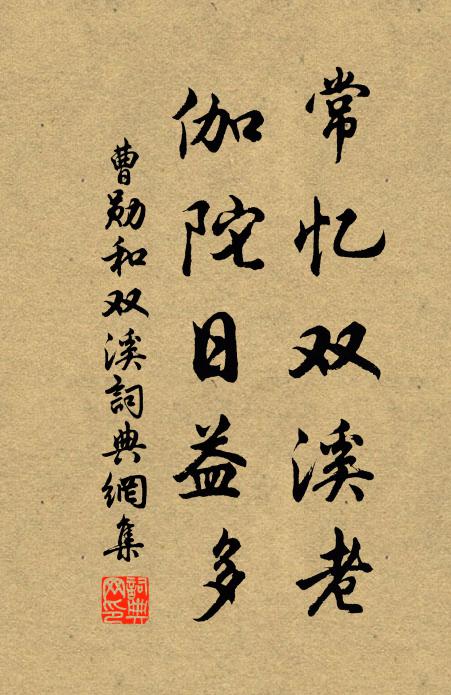 常忆双溪老
伽陀日益多
曹勋和双溪詞典網集
詞典网印